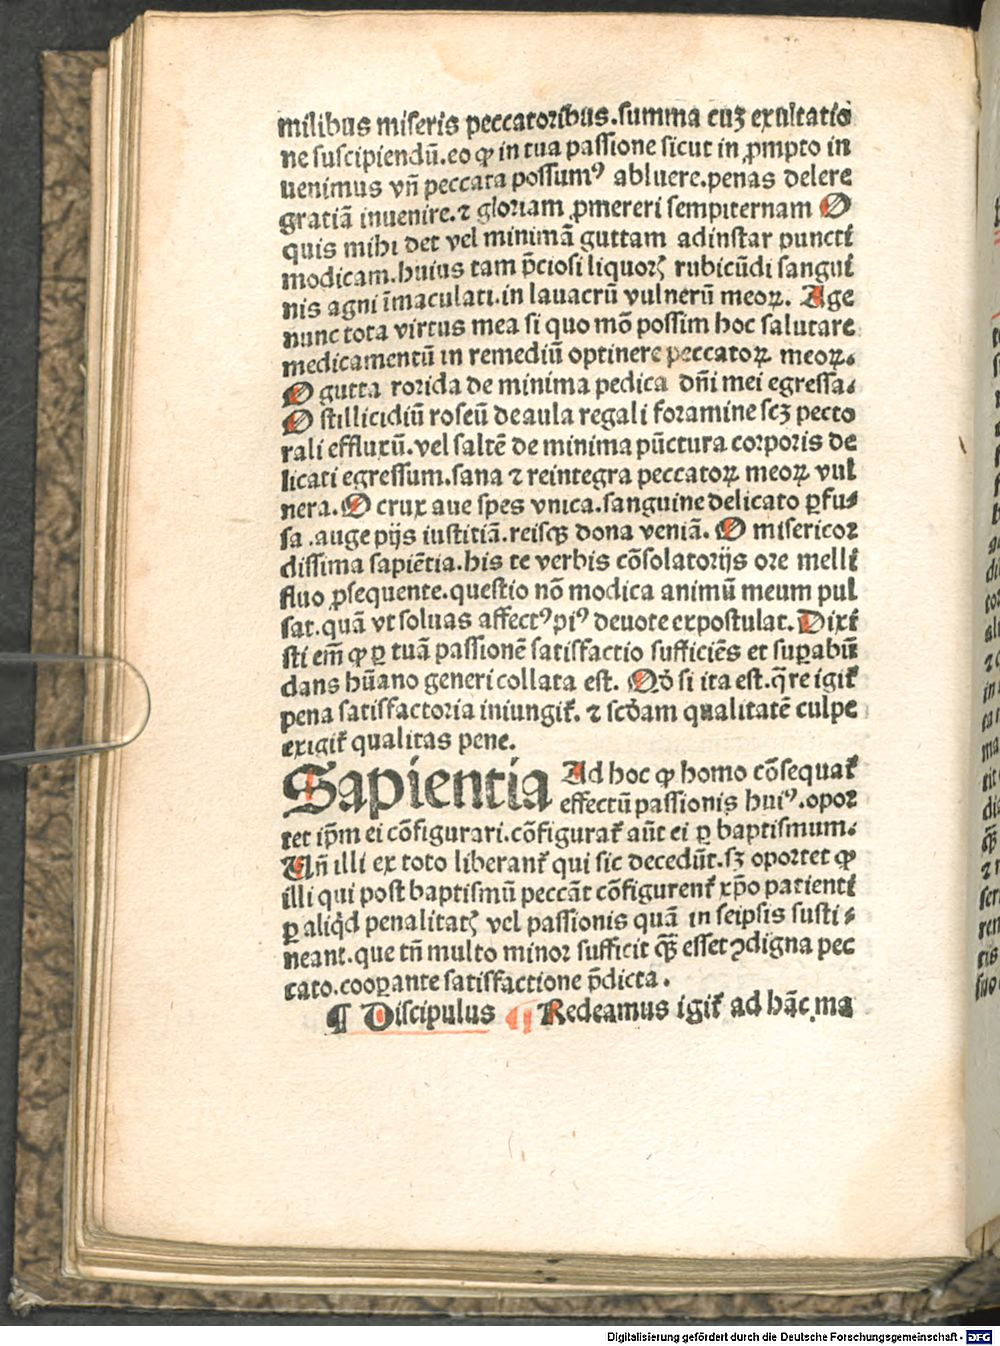 milibus miseris peccatoribus.summa cuȝ exultatio
ne suscipiendū.eo ꝙ in tua passione sicut in ꝓmpto in
uenimus vn̄ peccata possumꝰ abluere.penas delere
gratiā inuenire.⁊ gloriam ꝓmereri sempiternam O
quis mihi det vel minimā guttam adinstar puncti
modicam.huius tam p̄ciosi liquorꝭ rubicūdi sangui
nis agni īmaculati.in lauacrū vulnerū meoꝝ. Age
nunc tota virtus mea si quo mō possim hoc salutare
medicamentū in remediū optinere peccatoꝝ meoꝝ.
O gutta rorida de minima pedica dn̄i mei egressa.
O stillicidiū roseū de aula regali foramine scȝ pecto
rali effluxū.vel saltē de minima pūctura corporis de
licati egressum.sana ⁊ reintegra peccatoꝝ meoꝝ vul
nera. O crux aue spes vnica.sanguine delicato ꝑfu-
sa .auge pijs iustitiā.reisqꝫ dona veniā. O misericor
dissima sapiētia.his te verbis cōsolatorijs ore melli
fluo ꝓsequente.questio nō modica animū meum pul
sat.quā vt soluas affectꝰ piꝰ deuote expostulat. Dixi
sti em̄ ꝙ ꝑ tuā passionē satisfactio sufficiēs et suꝑabū
dans hūano generi collata est. Qd̓ si ita est.q̄re igit᷑
pena satisfactoria iniungit᷑. ⁊ scd̓am qualitatē culpe
exigit᷑ qualitas pene.
Sapientia Ad hoc ꝙ homo cōsequat᷑
effectū passionis huiꝰ.opor
tet ip̄m ei cōfigurari.cōfigurat᷑ aūt ei ꝑ baptismum.
Un̄ illi ex toto liberant᷑ qui sic decedūt.sȝ oportet ꝙ
illi qui post baptismū peccāt cōfigurent᷑ xp̄o patienti
ꝑ aliqd̓ penalitatꝭ vel passionis quā in seipsis susti-
neant.que tn̄ multo minor sufficit qꝫ̄ esset ꝯdigna pec
cato.cooꝑante satisfactione p̄dicta.
¶ Discipulus ¶ Redeamus igit᷑ ad hāc ma
Digitalisierung gefördert durch die Deutsche Forschungsgemeinschaft - DFG